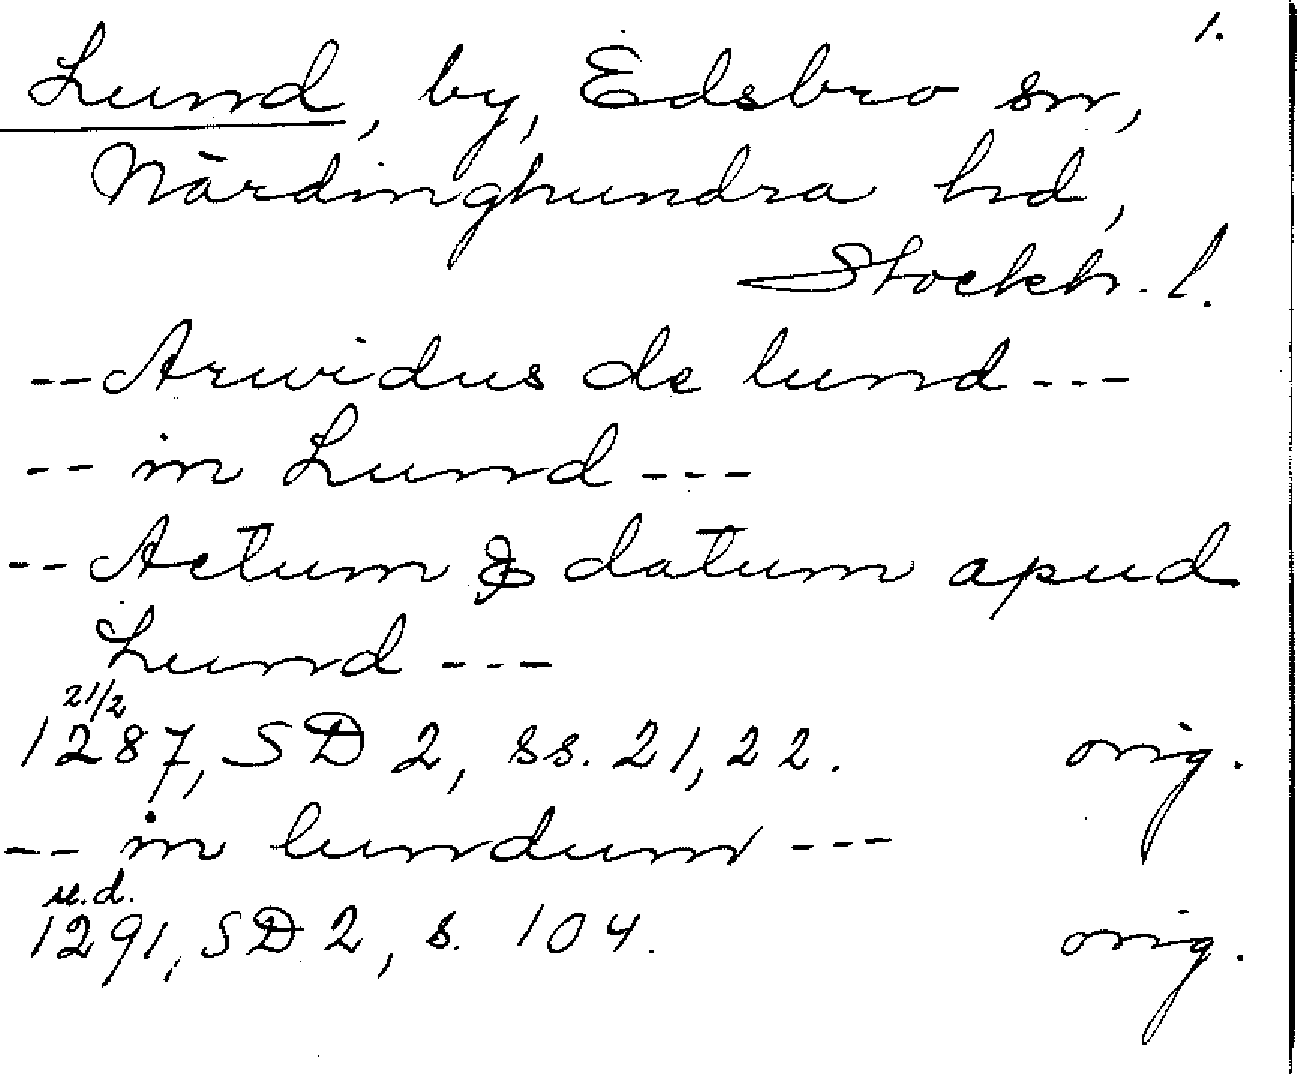 1.
Lund, by, Edsbro sn,
Närdinghundra hd,
Stockh. l.
-- Arwidus de lund ---
-- in Lund ---
-- Actum & datum apud
Lund ---
21/2
1287, SD 2, ss. 21, 22. orig.
-- in lundum ---
u.d.
1291, SD 2, s. 104. orig.